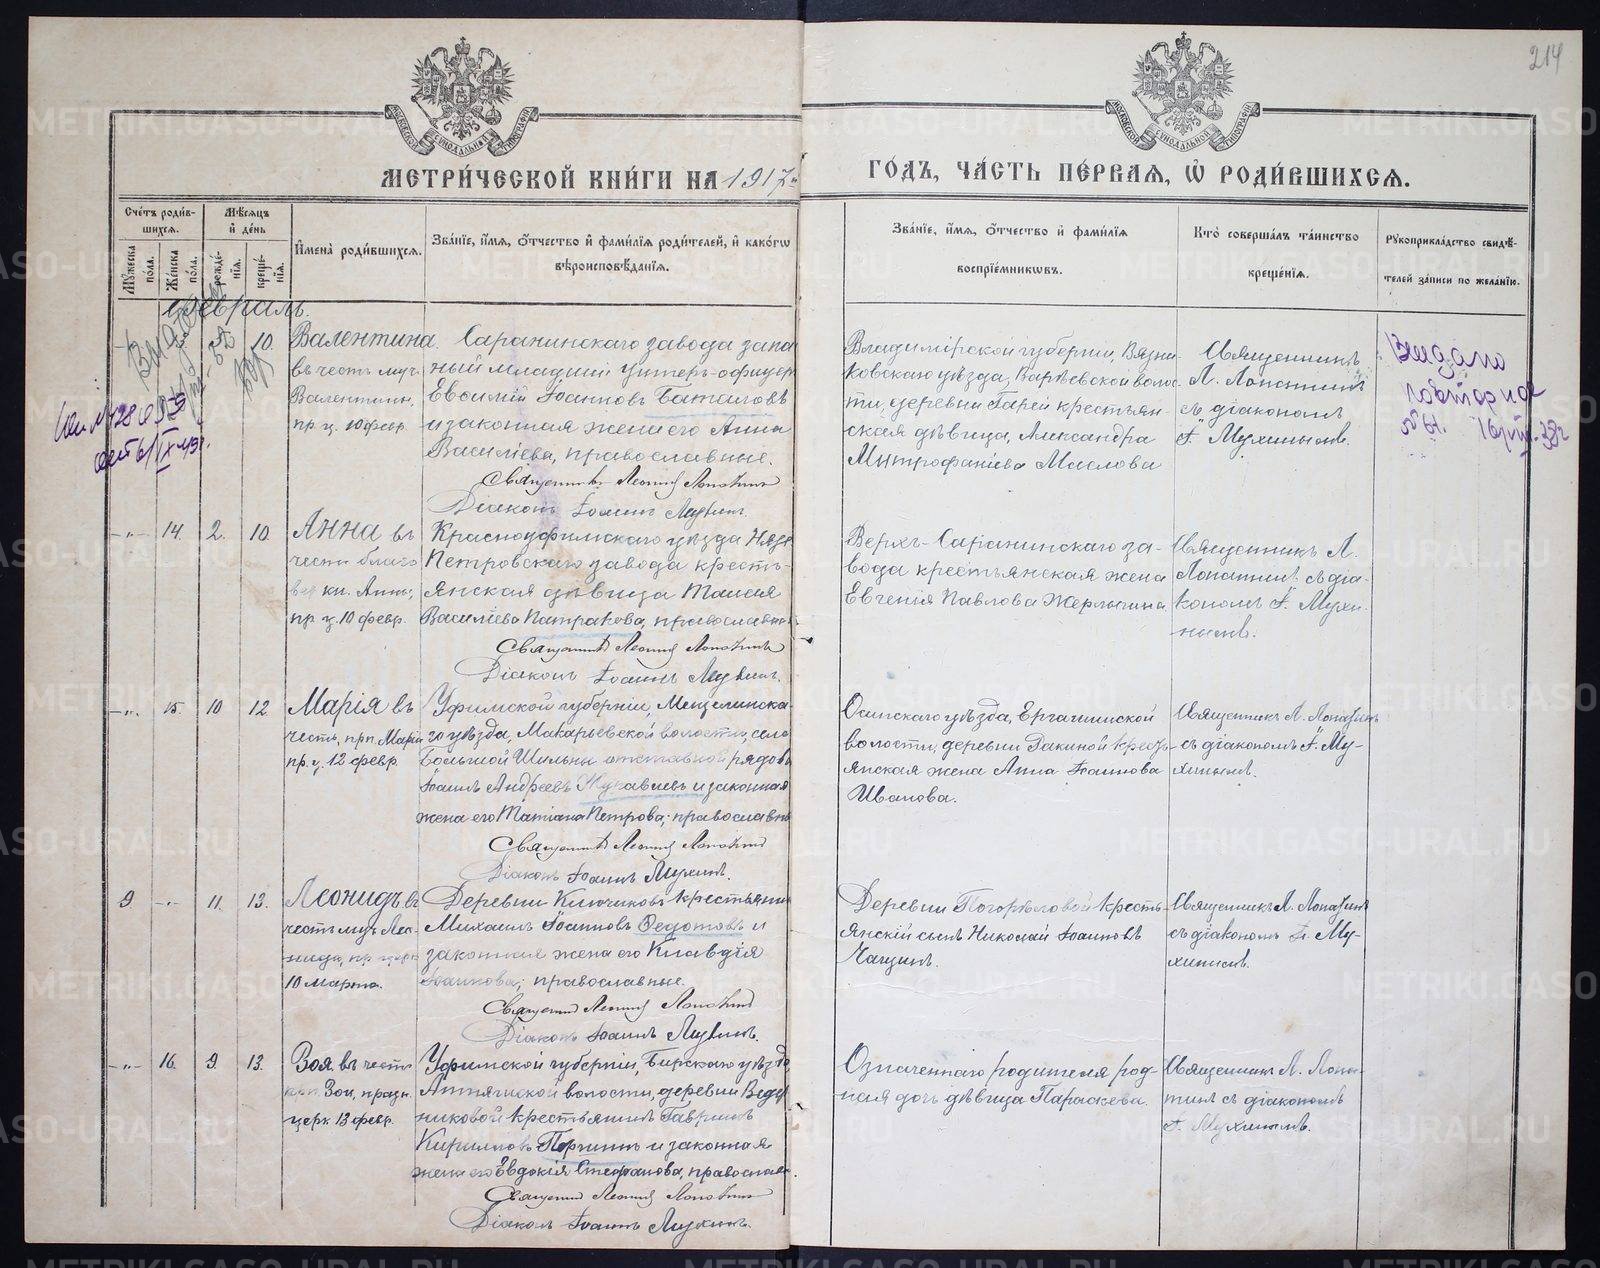 214
МОСКОВСКОЙ СѴНОДАЛЬНОЙ ТИПОГРАФІИ
МОСКОВСКОЙ СѴНОДАЛЬНОЙ ТИПОГРАФІИ
МЕТРИ́ЧЕСКОЙ КНИ́ГИ НА 1917й
ГО́ДЪ, ЧА́СТЬ ПЕ́РВАѦ, Ѡ҆ РОДИ́ВШИХСѦ.
Сче́тъ роди́в-
шихсѧ.
Мѣ́сѧцъ
и҆ де́нь
Мꙋ́жеска
по́ла.
Же́нска
по́ла.
рожде́-
нїѧ.
креще́-
нїѧ.
И҆мена̀ роди́вшихсѧ.
Зва́нїе, и҆́мѧ, ѻ҆́тчество и҆ фами́лїѧ роди́телей, и҆ како́гѡ
вѣроисповѣ́данїѧ.
Зва́нїе, и҆́мѧ, ѻ҆́тчество и҆ фами́лїѧ
воспрїе́мникѡвъ.
Кто̀ соверша́лъ та́инство
креще́нїѧ.
Рꙋкоприкла́дство свидѣ́-
телей за́писи по жела́нїю.
Февраль.
10.
Валентина.
въ честь муч.
Валентины,
пр. ц. 10 февр.
Саранинскаго завода запа
ный младшій унтеръ-офицеръ
Евѳимій Іоанновъ Баталовъ
и законная жена его Анна
Василіева, православные.
Священникъ Леонидъ Лопатинъ
Діаконъ Іоаннъ Мухинъ.
Владимірской губерніи, Вязни-
ковскаго уѣзда, волос-
ти, деревни крестьян-
ская дѣвица, Александра
Митрофаніева Маслова
Священникъ
Л. Лопатинъ
съ діакономъ
І. Мухинымъ.
Выдано
повторное
-"- 14. 2. 10.
Анна въ
честь благо
вѣр. кн. Анны;
пр. ц. 10 февр.
Красноуфимскаго уѣзда Нязе
Петровскаго завода кресть-
янская дѣвица Таисія
Василіева Патракова, православн
Священникъ Леонидъ Лопатинъ
Діаконъ Іоаннъ Мухинъ.
Верхъ-Саранинскаго за-
вода крестьянская жена
Евгенія Павлова Жерлыгина
Священникъ Л.
Лопатинъ съ діа-
кономъ І. Мухи-
нымъ.
-"- 15. 10 12
Марія въ
честь, прп. Маріи
пр. ц. 12 февр
Уфимской губерніи, Мензелинска-
го уѣзда, Макарьевской волости, села
Большой Шильны отставной рядов
Іоаннъ Андреевъ и законная
жена его Татіана Петрова; православн
Священникъ Леонидъ Лопатинъ
Діаконъ Іоаннъ Мухинъ.
Осинскаго уѣзда, Ергашинской
волости, деревни Дакиной кресть-
янская жена Анна Іоаннова
Иванова.
Священникъ Л. Лопатинъ
съ діакономъ І. Му-
хинымъ.
9 -"- 11. 13.
Леонидъ въ
честь муч. Лео-
нида, пр. церк
10 марта.
Деревни Ключиковъ крестьянинъ
Михаилъ Іоанновъ Ѳедотовъ и
законная жена его Клавдія
Іоаннова; православные.
Священникъ Леонидъ Лопатинъ
Діаконъ Іоаннъ Мухинъ.
Деревни Погорѣловой кресть-
янскій сынъ Николай Іоанновъ
Чащинъ.
Священникъ Л. Лопатинъ
съ діакономъ І. Му-
хинымъ.
-"- 16. 9 13.
Зоя въ честь
прп. Зои, празн.
церк 13 февр.
Уфимской губерніи, Бирскаго уѣзда
волости, деревни Веде
никовой крестьянинъ Гавріилъ
Кирилловъ и законная
жена его Евдокія Стефанова, православн.
Священникъ Леонидъ Лопатинъ
Діаконъ Іоаннъ Мухинъ.
Означеннаго родителя род-
ная дочь дѣвица Параскева.
Священникъ Л. Лопа-
тинъ съ діакономъ
І. Мухинымъ.
METRIKI.GASO-URAL.RU